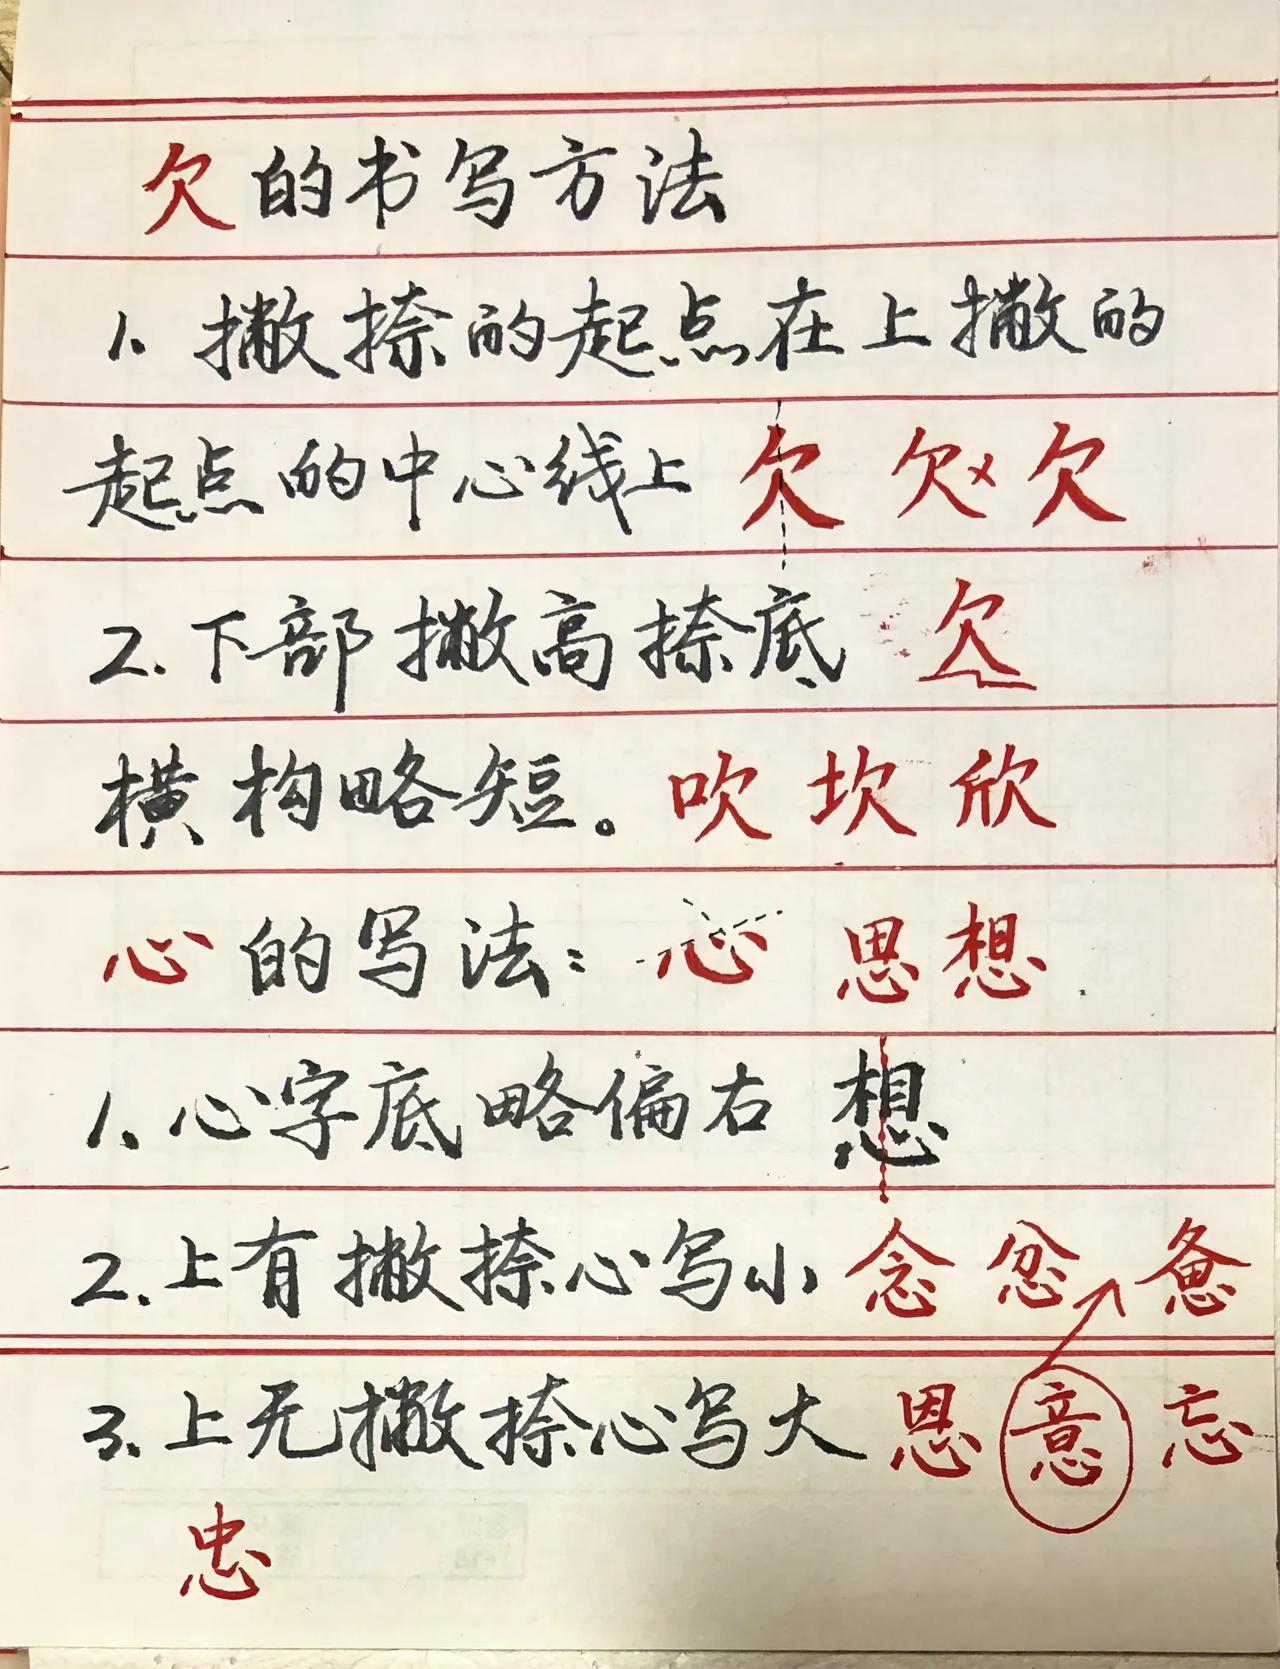 欠的书写方法
1. 撇捺的起点在上撇的
起点的中心线上 欠 欠× 欠
2. 下部撇高捺底 欠
横构略短。吹 坎 欣
心的写法: 心 思 想
1. 心字底略偏右 想
2. 上有撇捺心写小 念 忿 惫
3. 上无撇捺心写大 恩 意 忘
忠